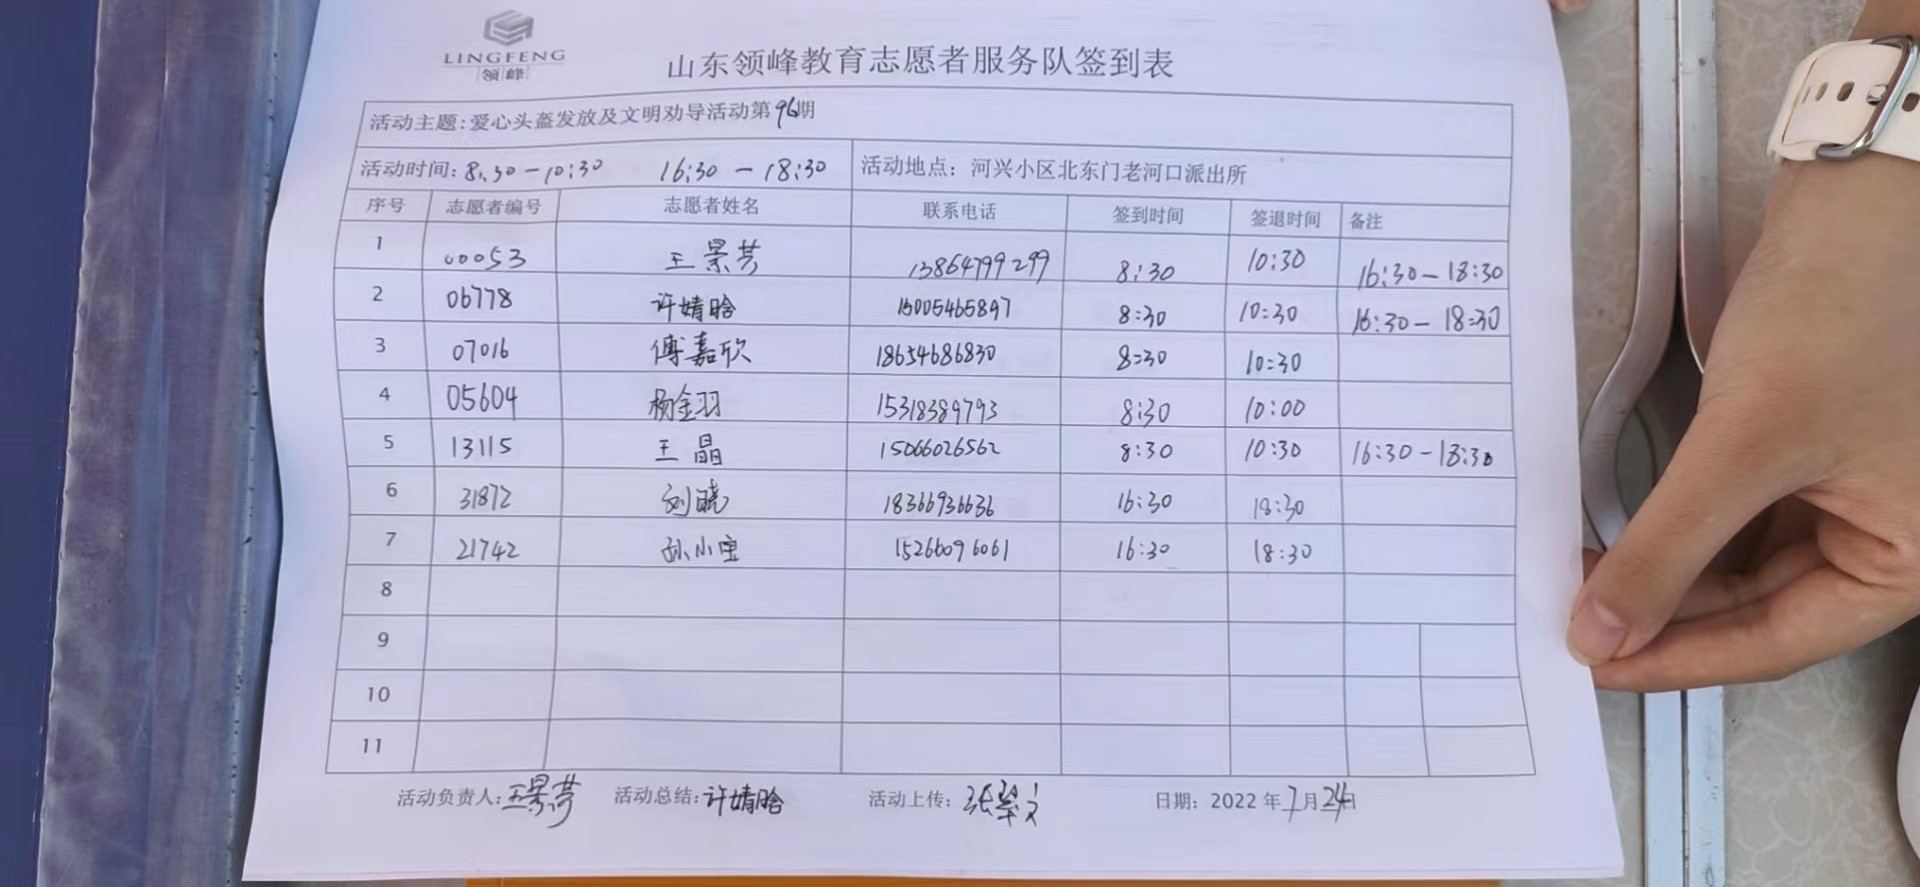 LINGFENG
领峰
山东领峰教育志愿者服务队签到表
活动主题:爱心头盔发放及文明劝导活动第96期
活动时间:8:30-10:30 16:30-18:30 活动地点: 河兴小区北东门老河口派出所
序号 志愿者编号 志愿者姓名 联系电话 签到时间 签退时间 备注
1 00053 王景芳 13864799299 8:30 10:30 16:30-18:30
2 06778 许婧晗 15005465897 8:30 10:30 16:30-18:30
3 07016 傅嘉欣 18654686830 8:30 10:30
4 05604 杨金羽 15318389793 8:30 10:00
5 13115 王晶 15066026562 8:30 10:30 16:30-18:30
6 31872 刘晓 18366936636 16:30 18:30
7 21742 孙小宝 15266096061 16:30 18:30
8
9
10
11
活动负责人:王景芳 活动总结:许婧晗 活动上传:张 日期: 2022年7月24日